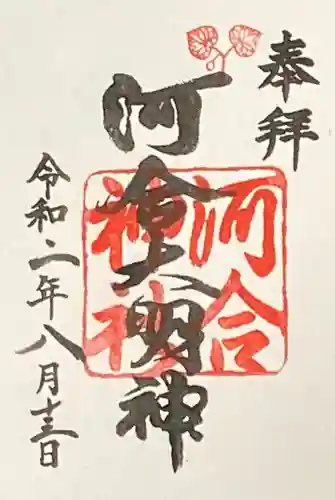 奉拝
河合大明神
河合神社
令和二年八月十三日